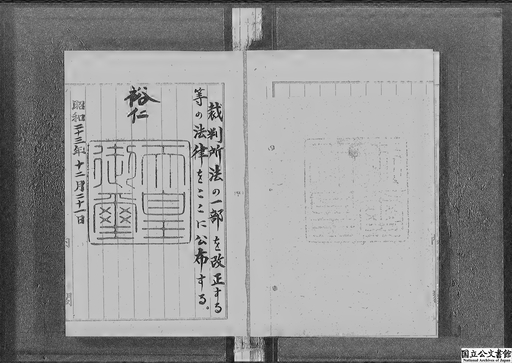 裁判所法の一部を改正する
等の法律をここに公布する。
裕仁
天皇
御璽
昭和二十三年十二月二十一日
国立公文書館
National Archives of Japan